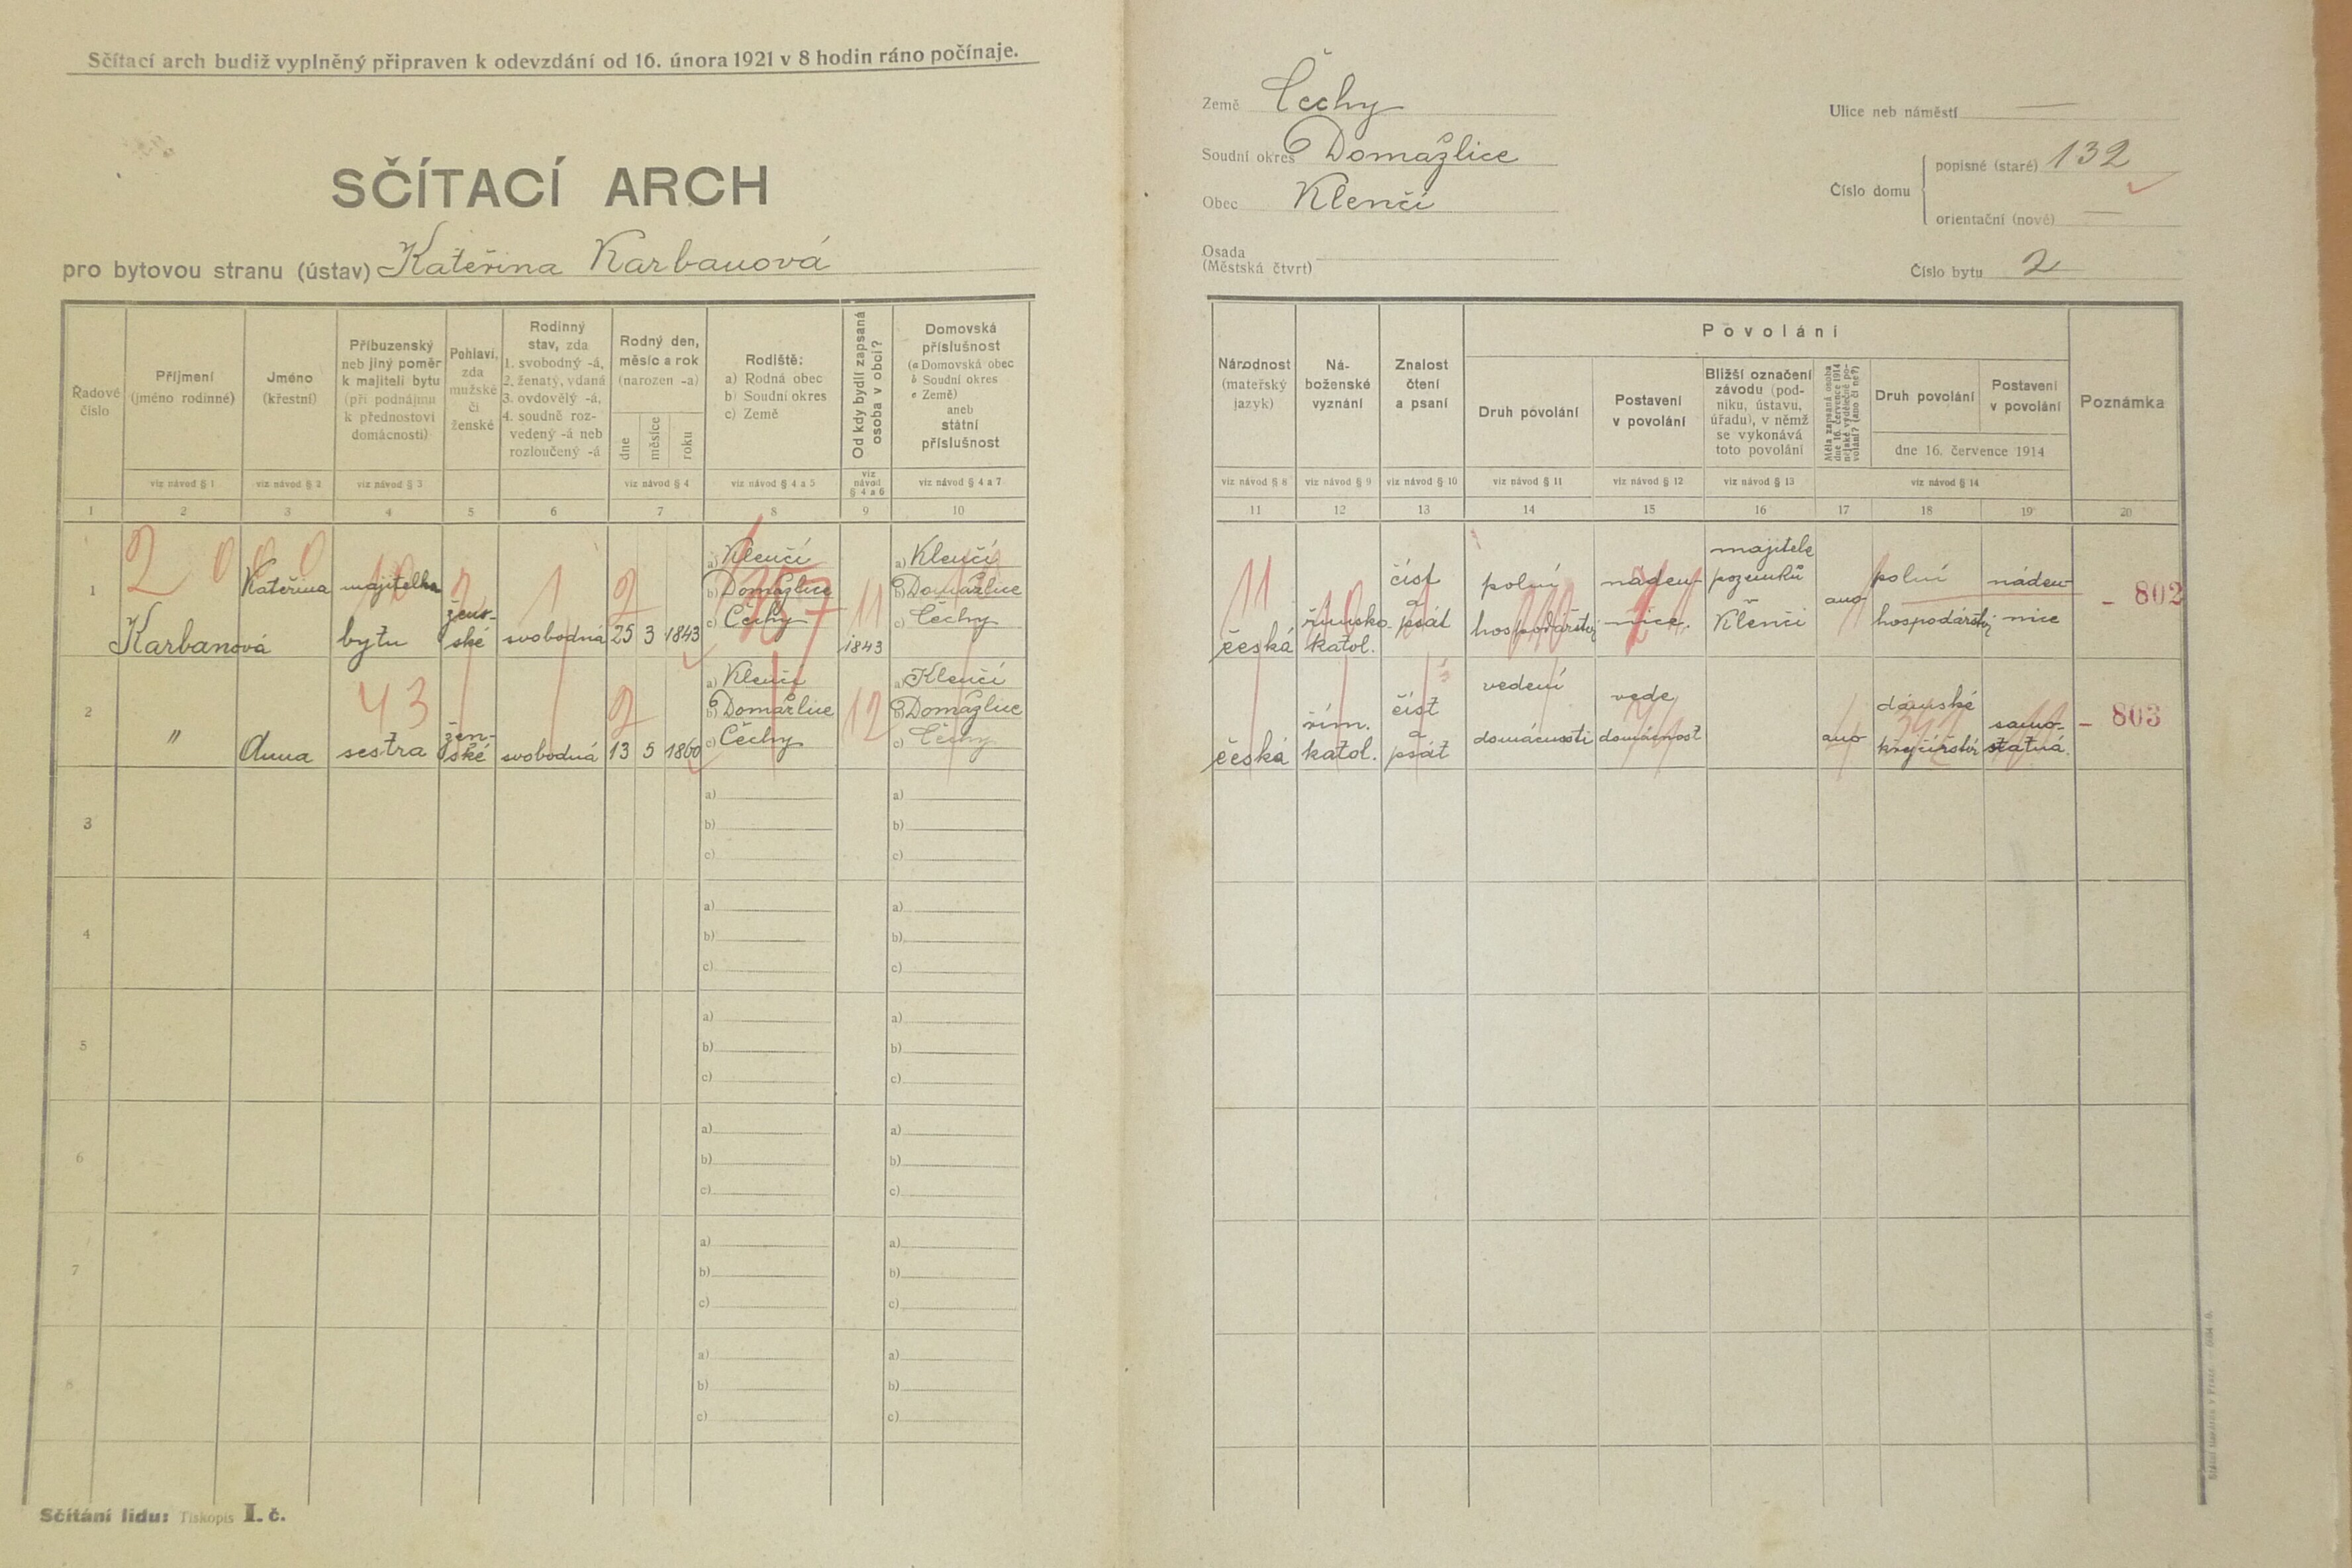 Sčítací arch budiž vyplněný připraven k odevzdání od 16. února 1921 v 8 hodin ráno počínaje.
SČÍTACÍ ARCH
pro bytovou stranu (ústav) Kateřina Karbanová
Země Čechy
Soudní okres Domažlice
Obec Klenčí
Osada
(Městská čtvrt)
Ulice neb náměstí —
Číslo domu
popisné (staré) 132
orientační (nové) —
Číslo bytu 2
Řadové číslo
Příjmení (jméno rodinné)
Jméno (křestní)
Příbuzenský neb jiný poměr k majiteli bytu (při podnájmu k přednostovi domácnosti)
Pohlaví, zda mužské či ženské
Rodinný stav, zda 1. svobodný -á, 2. ženatý, vdaná 3. ovdovělý -á, 4. soudně rozvedený -á neb rozloučený -á
Rodný den, měsíc a rok (narozen -a)
dne měsíce roku
Rodiště: a) Rodná obec b) Soudní okres c) Země
Od kdy bydlí zapsaná osoba v obci?
Domovská příslušnost (a Domovská obec b Soudní okres c Země) aneb státní příslušnost
viz návod § 1 viz návod § 2 viz návod § 3 viz návod § 4 viz návod § 4 a 5 viz návod § 4 a 6 viz návod § 4 a 7
1 2 3 4 5 6 7 8 9 10
Národnost (mateřský jazyk)
Náboženské vyznání
Znalost čtení a psaní
Povolání
Druh povolání
Postavení v povolání
Bližší označení závodu (podniku, ústavu, úřadu), v němž se vykonává toto povolání
Měla zapsaná osoba dne 16. července 1914 nějaké výdělečné povolání? (ano či ne?)
Druh povolání
Postavení v povolání
dne 16. července 1914
Poznámka
viz návod § 8 viz návod § 9 viz návod § 10 viz návod § 11 viz návod § 12 viz návod § 13 viz návod § 14
11 12 13 14 15 16 17 18 19 20
1 Karbanová Kateřina majitelka bytu ženské svobodná 25 3 1843
a) Klenčí
b) Domažlice
c) Čechy
1843
a) Klenčí
b) Domažlice
c) Čechy
česká římsko katol. číst a psát polní hospodářství nádennice majitelé pozemků Klenčí ano polní hospodářství nádennice – 802
2 " Anna sestra ženské svobodná 13 5 1860
a) Klenčí
b) Domažlice
c) Čechy
a) Klenčí
b) Domažlice
c) Čechy
česká řím. katol. číst a psát vedení domácnosti vede domácnost ano dámské krejčířství samostatná – 803
3 a) a)
b) b)
c) c)
4 a) a)
b) b)
c) c)
5 a) a)
b) b)
c) c)
6 a) a)
b) b)
c) c)
7 a) a)
b) b)
c) c)
8 a) a)
b) b)
c) c)
Sčítání lidu: Tiskopis I. č.